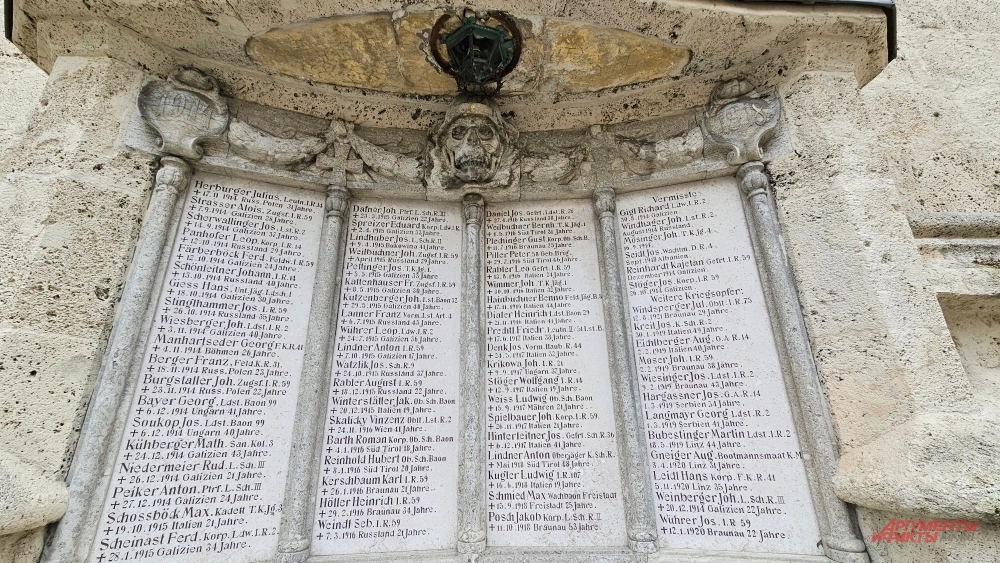 Herburger Julius, Leutn. I.R. 14
+ 17. 11 1914 Russ. Polen 31 Jahre.
Strasser Alois, Zugsf. I.R. 59
+ 7. 9 1914 Galizien 28 Jahre.
Scherwallinger Jos. L.st.R. 2
+ 14. 9 1914 Galizien 37 Jahre.
Panhofer Leop. Korp. I.R. 14
+ 12. 10 1914 Russland 29 Jahre.
Färberböck Ferd. Feldw. I.R. 59
+ 12. 10 1914 Galizien 24 Jahre.
Schönleitner Johann. I.R. 14
+ 13. 10 1914 Russland 40 Jahre.
Giess Hans, Unt. Jäg. Ldsch. 1
+ 18. 10 1914 Galizien 30 Jahre.
Stinglhammer Jos. I.R. 59
+ 26. 10 1914 Russland 35 Jahre.
Wiesberger Joh. Ldst. I.R. 2
+ 3. 11 1914 Galizien 40 Jahre.
Manhartseder Georg F.K.R. 41
+ 4. 11 1914 Böhmen 26 Jahre.
Berger Franz, Feld.K.R. 31.
+ 18. 11 1914 Russ. Polen 23 Jahre.
Burgstaller Joh. Zugsf. I.R. 59
+ 23. 11 1914 Russ. Polen 22 Jahre.
Bayer Georg, Ldst. Baon 99
+ 6. 12. 1914 Ungarn 41 Jahre.
Soukop Jos. Ldst. Baon 99
+ 6. 12 1914 Ungarn 40 Jahre.
Kühberger Math. San. Kol. 3
+ 24. 12 1914 Galizien 43 Jahre.
Niedermeier Rud. L. Sch. III
+ 26. 12 1914 Galizien 21 Jahre.
Peiker Anton, Ptrf. L. Sch. III
+ 27. 12 1914 Galizien 24 Jahre.
Schossböck Max, Kadett T.K.Jg. 3
+ 19. 10 1915 Italien 21 Jahre.
Scheinast Ferd. Korp. Ldw. I.R. 2
+ 28. 1 1915 Galizien 34 Jahre.
Dafner Joh. Ptrf. L. Sch. R. II
1915 Galizien 22 Jahre.
Spreizer Eduard Korp. Ldw. I.R.
1915 Galizien 35 Jahre.
Lindhuber Jos. I. Sch. R. II
+ 9. 4 1915 Bukowina 41 Jahre.
Weilbuchner Joh. Zugsf. I.R. 59
+ April 1915 Russland 29 Jahre.
Peflinger Jos. T.K.Jg. 1
+ 3. 5 1915 Galizien 33 Jahre.
Kattenhauser Fr. Zugsf. I.R. 59
+ 8. 5 1915 Galizien 40 Jahre.
Kutzenberger Joh. Lst. Baon 12
+ 29. 5 1915 Galizien 40 Jahre.
Lanner Franz Vorm. Lst. Art. 4
+ 6. 7 1915 Russland 45 Jahre.
Wührer Leop. Ldw. I.R. 2
+ 24. 7 1915 Galizien 36 Jahre.
Lindner Anton I.R. 59
+ 7. 10 1915 Galizien 17 Jahre.
Watzlik Jos. Sch. R. 9
+ 24. 10 1915 Russland 37 Jahre.
Rabler August I.R. 59
+ 18. 12 1915 Russland 22 Jahre.
Winterstaller Jak. Ob. Sch. Baon
+ 20. 12 1915 Italien 19 Jahre.
Skalicky Vinzenz Ob. st. L. R. 2
+ 24. 11 1916 Wien 41 Jahre.
Barth Roman Korp. Ob. Sch. Baon
+ 4. 1 1916 Süd Tirol 18 Jahre.
Reinhold Hubert Ob. Sch. Baon
+ 8. 1 1916 Süd Tirol 20 Jahre.
Kerschbaum Karl I.R. 59
+ 26. 1 1916 Braunau 21 Jahre.
Höller Heinrich I.R. 59
+ 29. 2 1916 Braunau 34 Jahre.
Weindl Seb. I.R. 59
+ 7. 3 1916 Russland 21 Jahre.
Daniel Jos. Gefrt. Ldst. R. 21
Weilbuchner Bernh. T.K.Jg. 1
1918 Süd Tirol 21 Jahre.
Plechinger Gust Korp. Ob. Sch. B.
1916 Braunau 25 Jahre.
Piller Peter 28 Geb. Brig.
1916 Süd Tirol 29 Jahre.
Rabler Leo Gefrt. I.R. 59
1916 Italien
Wimmer Joh. T.K.Jg. 1
+ 20. 10 1916 Italien 32 Jahre.
Hainbuchner Benno Feld Jäg. B.
1916 Italien 40 Jahre.
Dialer Heinrich Ldst. Baon 29
1916 Italien 40 Jahre.
Prechtl Friedr. Leutn. II/ 5t Lst. B.
+ 17. 6 1917 Italien 38 Jahre.
Denk Jos. Vorm. Baub. R. 44
+ 24. 5 1917 Italien 32 Jahre.
Krikowa Joh. I.R. 21
+ 9. 9 1917 Ungarn 37 Jahre.
Stöger Wolfgang I.R. 14
+ 12. 9 1917 Italien 19 Jahre.
Weiss Ludwig Ob. Sch. Baon
+ 15. 9 1917 Mähren 21 Jahre.
Spielbauer Joh. Korp. I.R. 59
+ 26. 11 1917 Italien 21 Jahre.
Hinterleitner Jos. Gefrt. Sch. R. 36
+ 6. 12 1917 Italien 41 Jahre.
Lindner Anton Oberjäger K. Sch. R.
+ Mai 1918 Süd Tirol 48 Jahre.
Kugler Ludwig I.R. 107
+ 16. 6 1918 Italien 19 Jahre.
Schmied Max Wachbaon Freistadt
+ 15. 9 1918 Freistadt 25 Jahre.
Posch Jakob Korp. L. Sch. R. II
+ 11. 10 1918 Braunau 53 Jahre.
Vermisste:
Gigl Richard Ldw. I.R. 2
1914 Galizien
Windhager Joh. Lst. R. 2
August 1914 Russland
Müsinger Joh. T.K.Jg. 4.
1914.
Seidl Jos. Wachtm. D.R. 4
Sept. 1918 Albanien
Reinhard Kajetan Gefrt. I.R. 59
Dezember 1914 Galizien
Stöger Jos. Korp. I.R. 59
1914 Galizien
Weitere Kriegsopfer:
Windsperger Jul. Obst. I.R. 75
+ 12. 8 1921 Braunau 29 Jahre.
Kreil Jos. K. Sch. R. 2
+ 30. 1 1919 Galizien 44 Jahre.
Eichlberger Aug. G.A.R. 14
2. 2 1919 Italien 40 Jahre.
Moser Joh. I.R. 59
2. 2 1919 Braunau 38 Jahre.
Wiesinger Jos. Ldst. I.R. 2
9. 2 1919 Braunau 43 Jahre.
Hargassner Jos. G.A.R. 14
1. 3 1919 Serbien 34 Jahre.
Langmayr Georg Ldst. R. 2
1. 5 1919 Serbien 41 Jahre.
Bubestinger Martin Ldst. I.R. 2
18. 5 1919 Linz 44 Jahre.
Gneiger Aug. Bootmannsmaat K.M.
3. 4 1920 Linz 31 Jahre.
Leidl Hans Korp. F.K.R. 41
5. 11 1920 Linz 35 Jahre.
Weinberger Joh. L. Sch. R. III
+ 20. 12 1914 Galizien 22 Jahre.
Wührer Jos. I.R. 59
+ 12. 1 1920 Braunau 22 Jahre.
АРГУМЕНТЫ
И ФАКТЫ